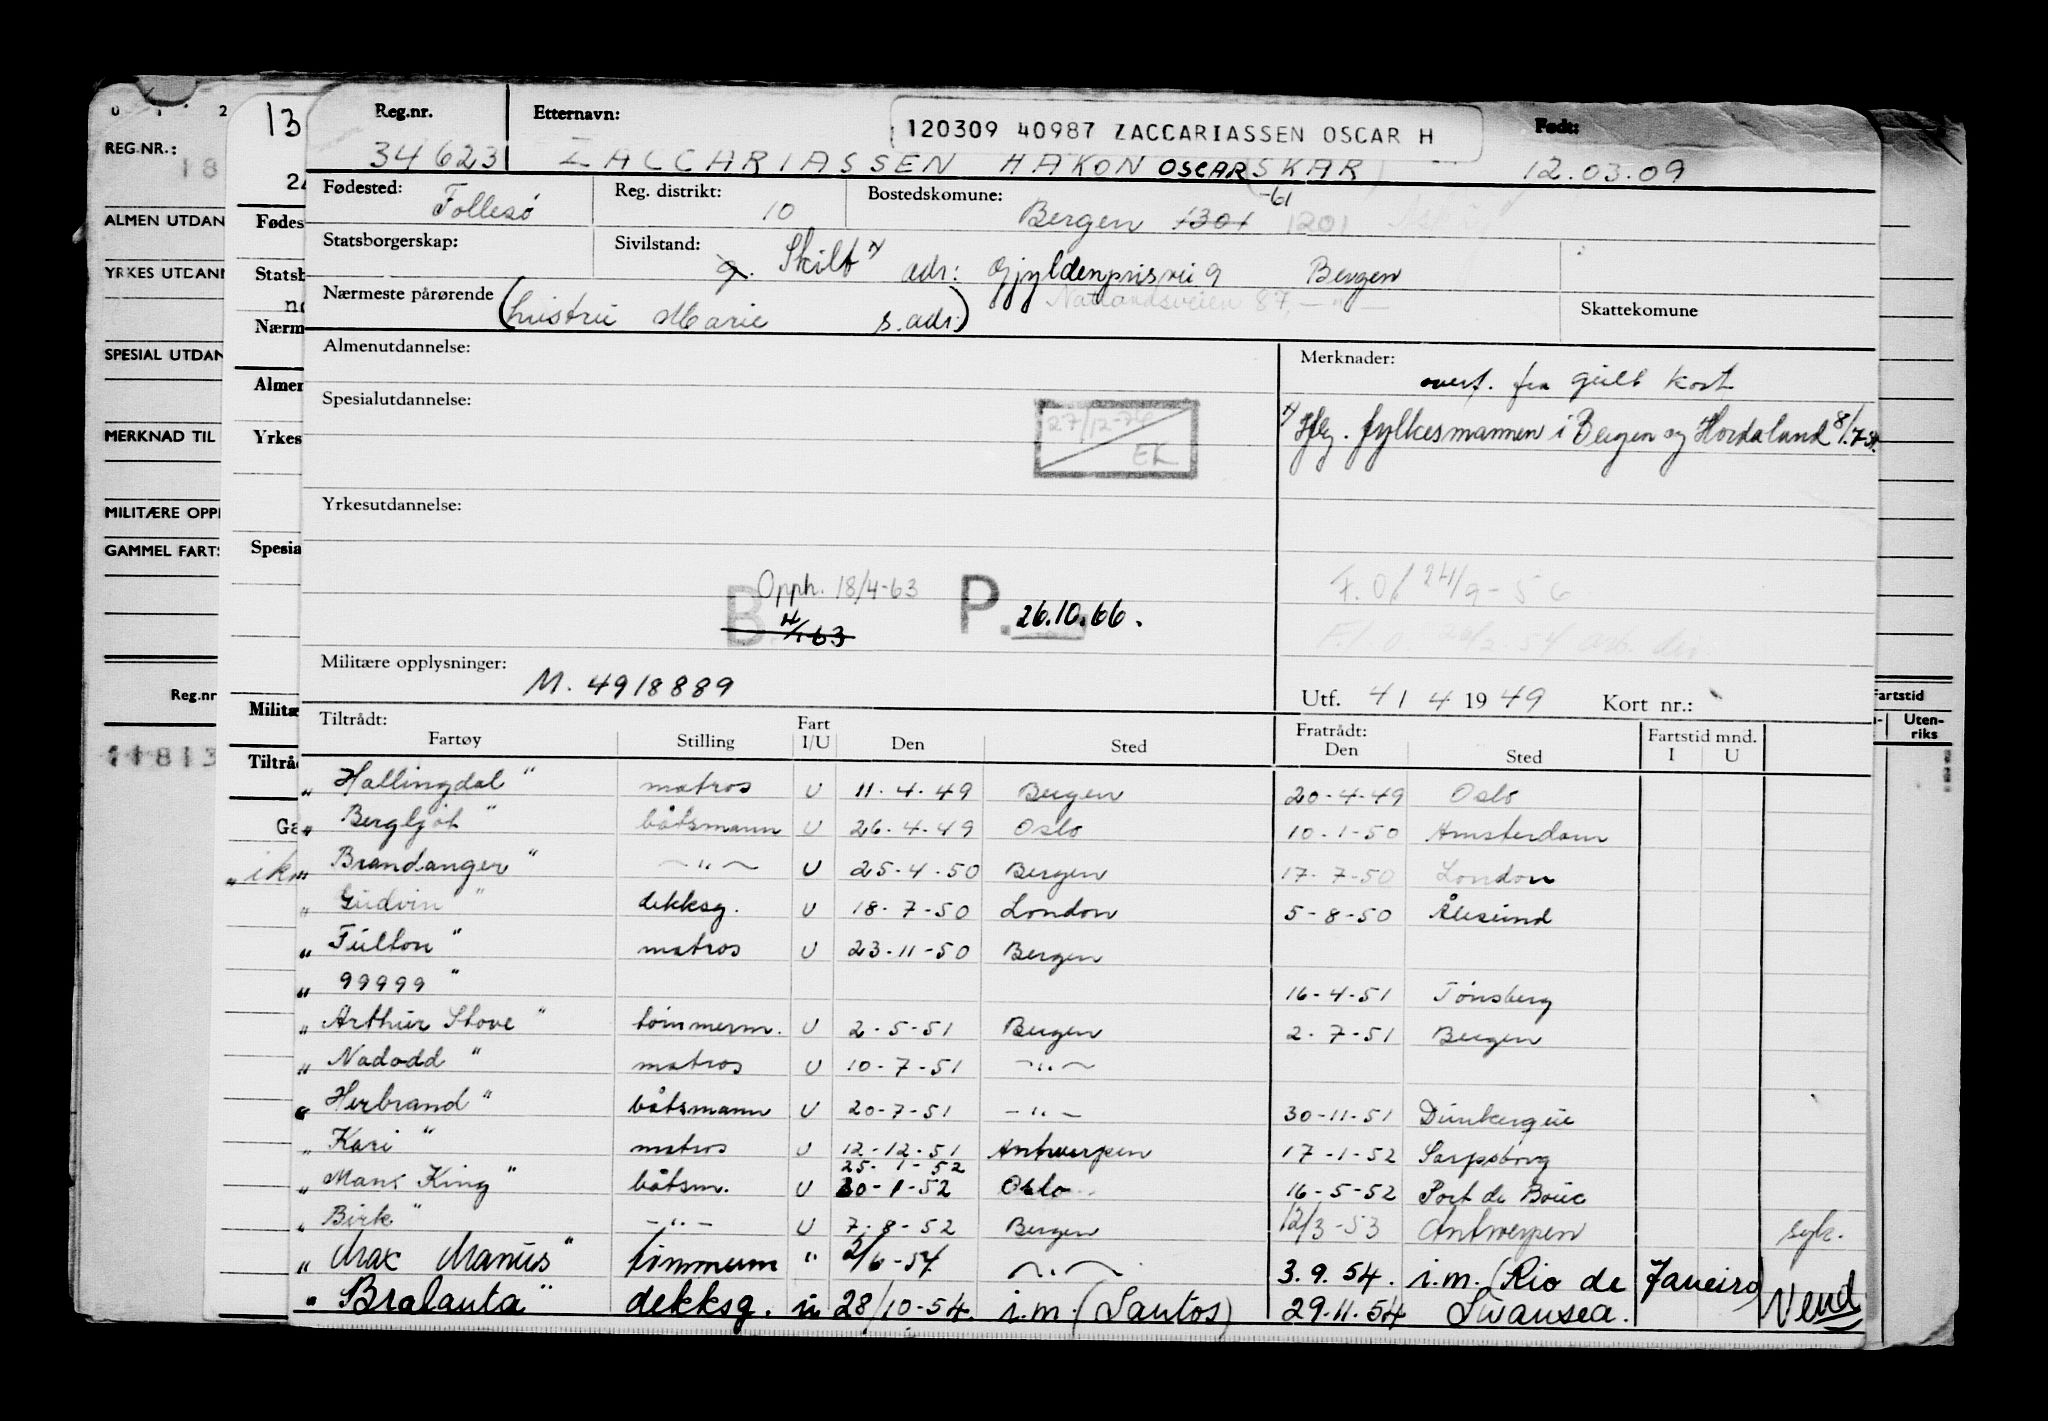 Reg.nr. Etternavn: 120309 40987 ZACCARIASSEN OSCAR H Født:
34623 ZACCARIASSEN HAKON OSCAR (SKAR) 12.03.09
Fødested: Follesø Reg. distrikt: 10 Bostedskomune: Bergen 1301 -61 1201
Statsborgerskap: Sivilstand: g. Skilt adr: Gyldenprisvei 9 Bergen
Nærmeste pårørende (Christine Marie s. adr.) Natlandsveien 87, — " — Skattekomune
Almenutdannelse: Merknader:
overf. fra gult kort
Spesialutdannelse:
27/12-76 EL
Iflg. fylkesmannen i Bergen og Hordaland 8/7-51.
Yrkesutdannelse:
B Opph. 18/4-63 P. 26.10.66.
F.O/ 24/9-56
Militære opplysninger: M. 4918889
Utf. 4/4 1949 Kort nr.:
Tiltrådt: Fratrådt: Fartstid mnd.
Fartøy Stilling Fart I/U Den Sted Den Sted I U
„ Hallingdal " matros U 11-4-49 Bergen 20-4-49 Oslo
„ Bergljot " båtsmann U 26-4-49 Oslo 10-1-50 Amsterdam
„ Brandanger " — " — U 25-4-50 Bergen 17-7-50 London
„ Gudvin " dekksg. U 18-7-50 London 5-8-50 Ålesund
„ Fulton " matros U 23-11-50 Bergen
„ 99999 " 16-4-51 Tønsberg
„ Arthur Stove " tømmerm. U 2-5-51 Bergen 2-7-51 Bergen
„ Nadodd " matros U 10-7-51 — " —
„ Herbrand " båtsmann U 20-7-51 — " — 30-11-51 Dunkerque
„ Kari " matros U 12-12-51 Antwerpen 17-1-52 Sarpsborg
25-1-52
„ Mans King " båtsm. U 30-1-52 Oslo 16-5-52 Port de Bouc
„ Birk " — " — U 7-8-52 Bergen 12/3-53 Antwerpen syk.
„ Max Manus " tømmerm " 2/6-54 — " — 3.9.54. i.m. (Rio de Janeiro)
„ Bralanta " dekksg. u 28/10-54. i.m. (Santos) 29.11.54 Swansea. Vend
REG.NR.:
ALMEN UTDAN
YRKES UTDAN
SPESIAL UTDAN
MERKNAD TIL
MILITÆRE OPPL
GAMMEL FARTS
Reg.nr
11813
13
Fødes
Statsb
Nærm
Almen
Yrkes
Spesia
Militæ
Tiltråd
Ga
Fartstid
Uten-
riks